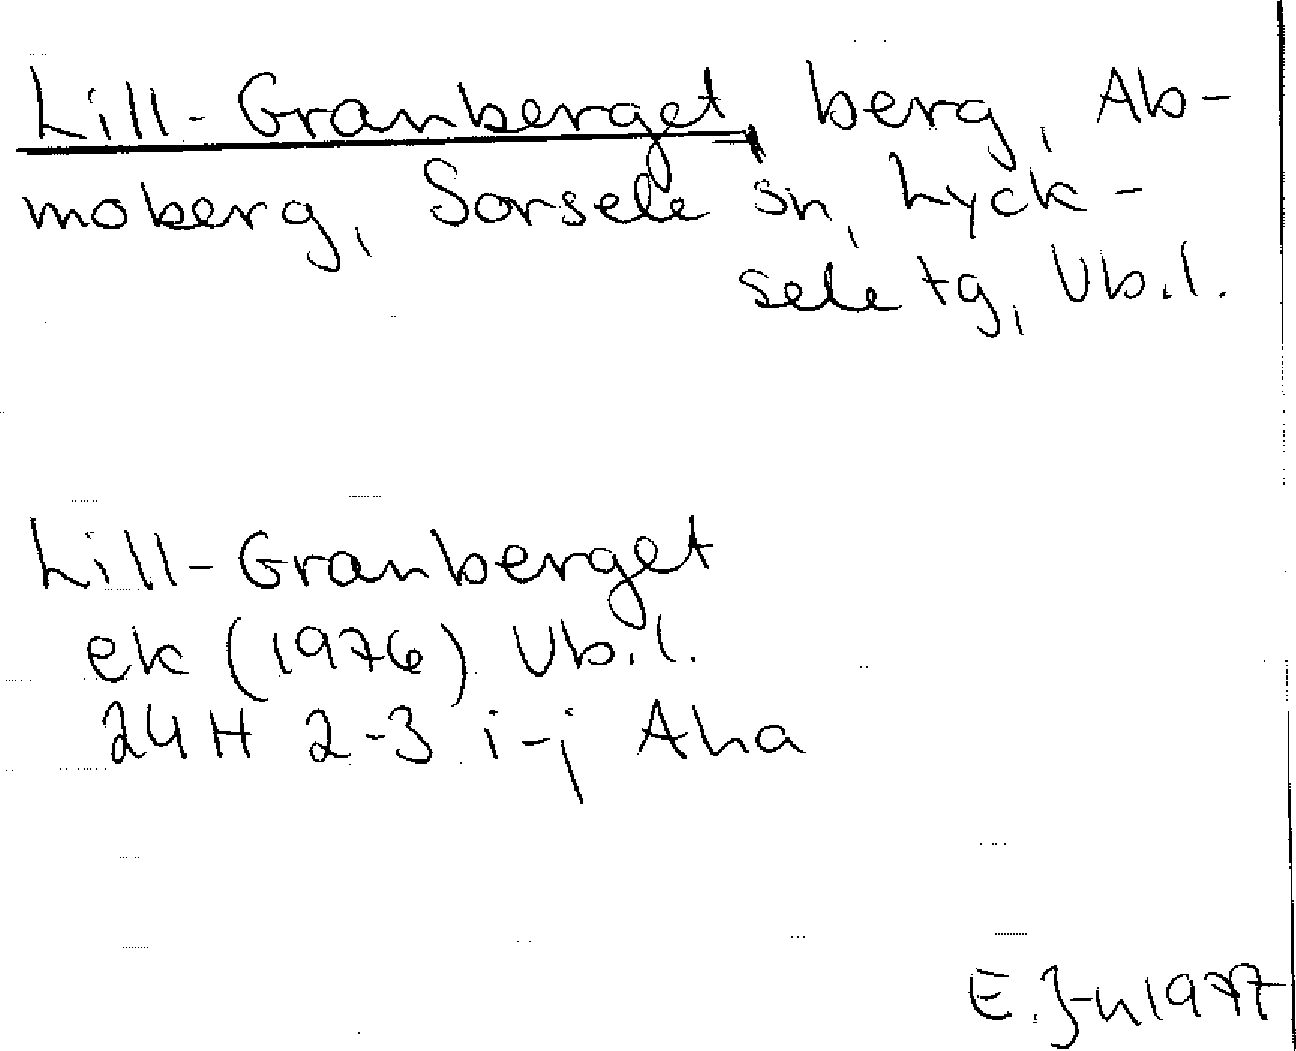 Lill-Granberget, berg, Ab-
moberg, Sorsele sn, Lyck-
sele tg, Vb.l.
Lill-Granberget
ek (1976) Vb.l.
24H 2-3 i-j Aha
E. J-n 1977